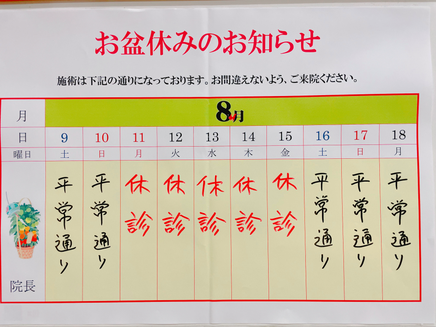 お盆休みのお知らせ
施術は下記の通りになっております。お間違えないよう、ご来院ください。
月 8月
日 9 10 11 12 13 14 15 16 17 18
曜日 土 日 月 火 水 木 金 土 日 月
平常通り 平常通り 休診 休診 休診 休診 休診 平常通り 平常通り 平常通り
院長